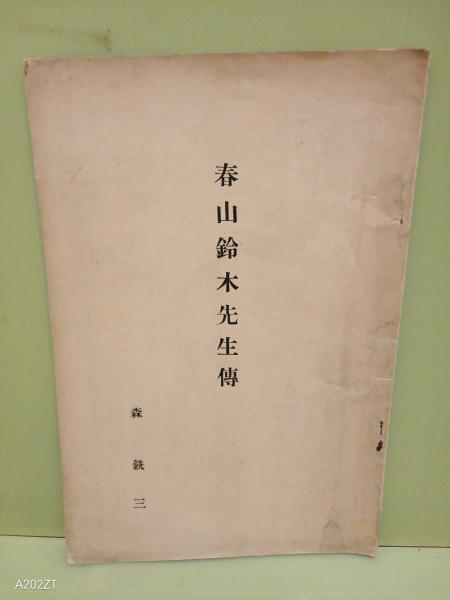 春山鈴木先生傳
森銑三
A202ZT